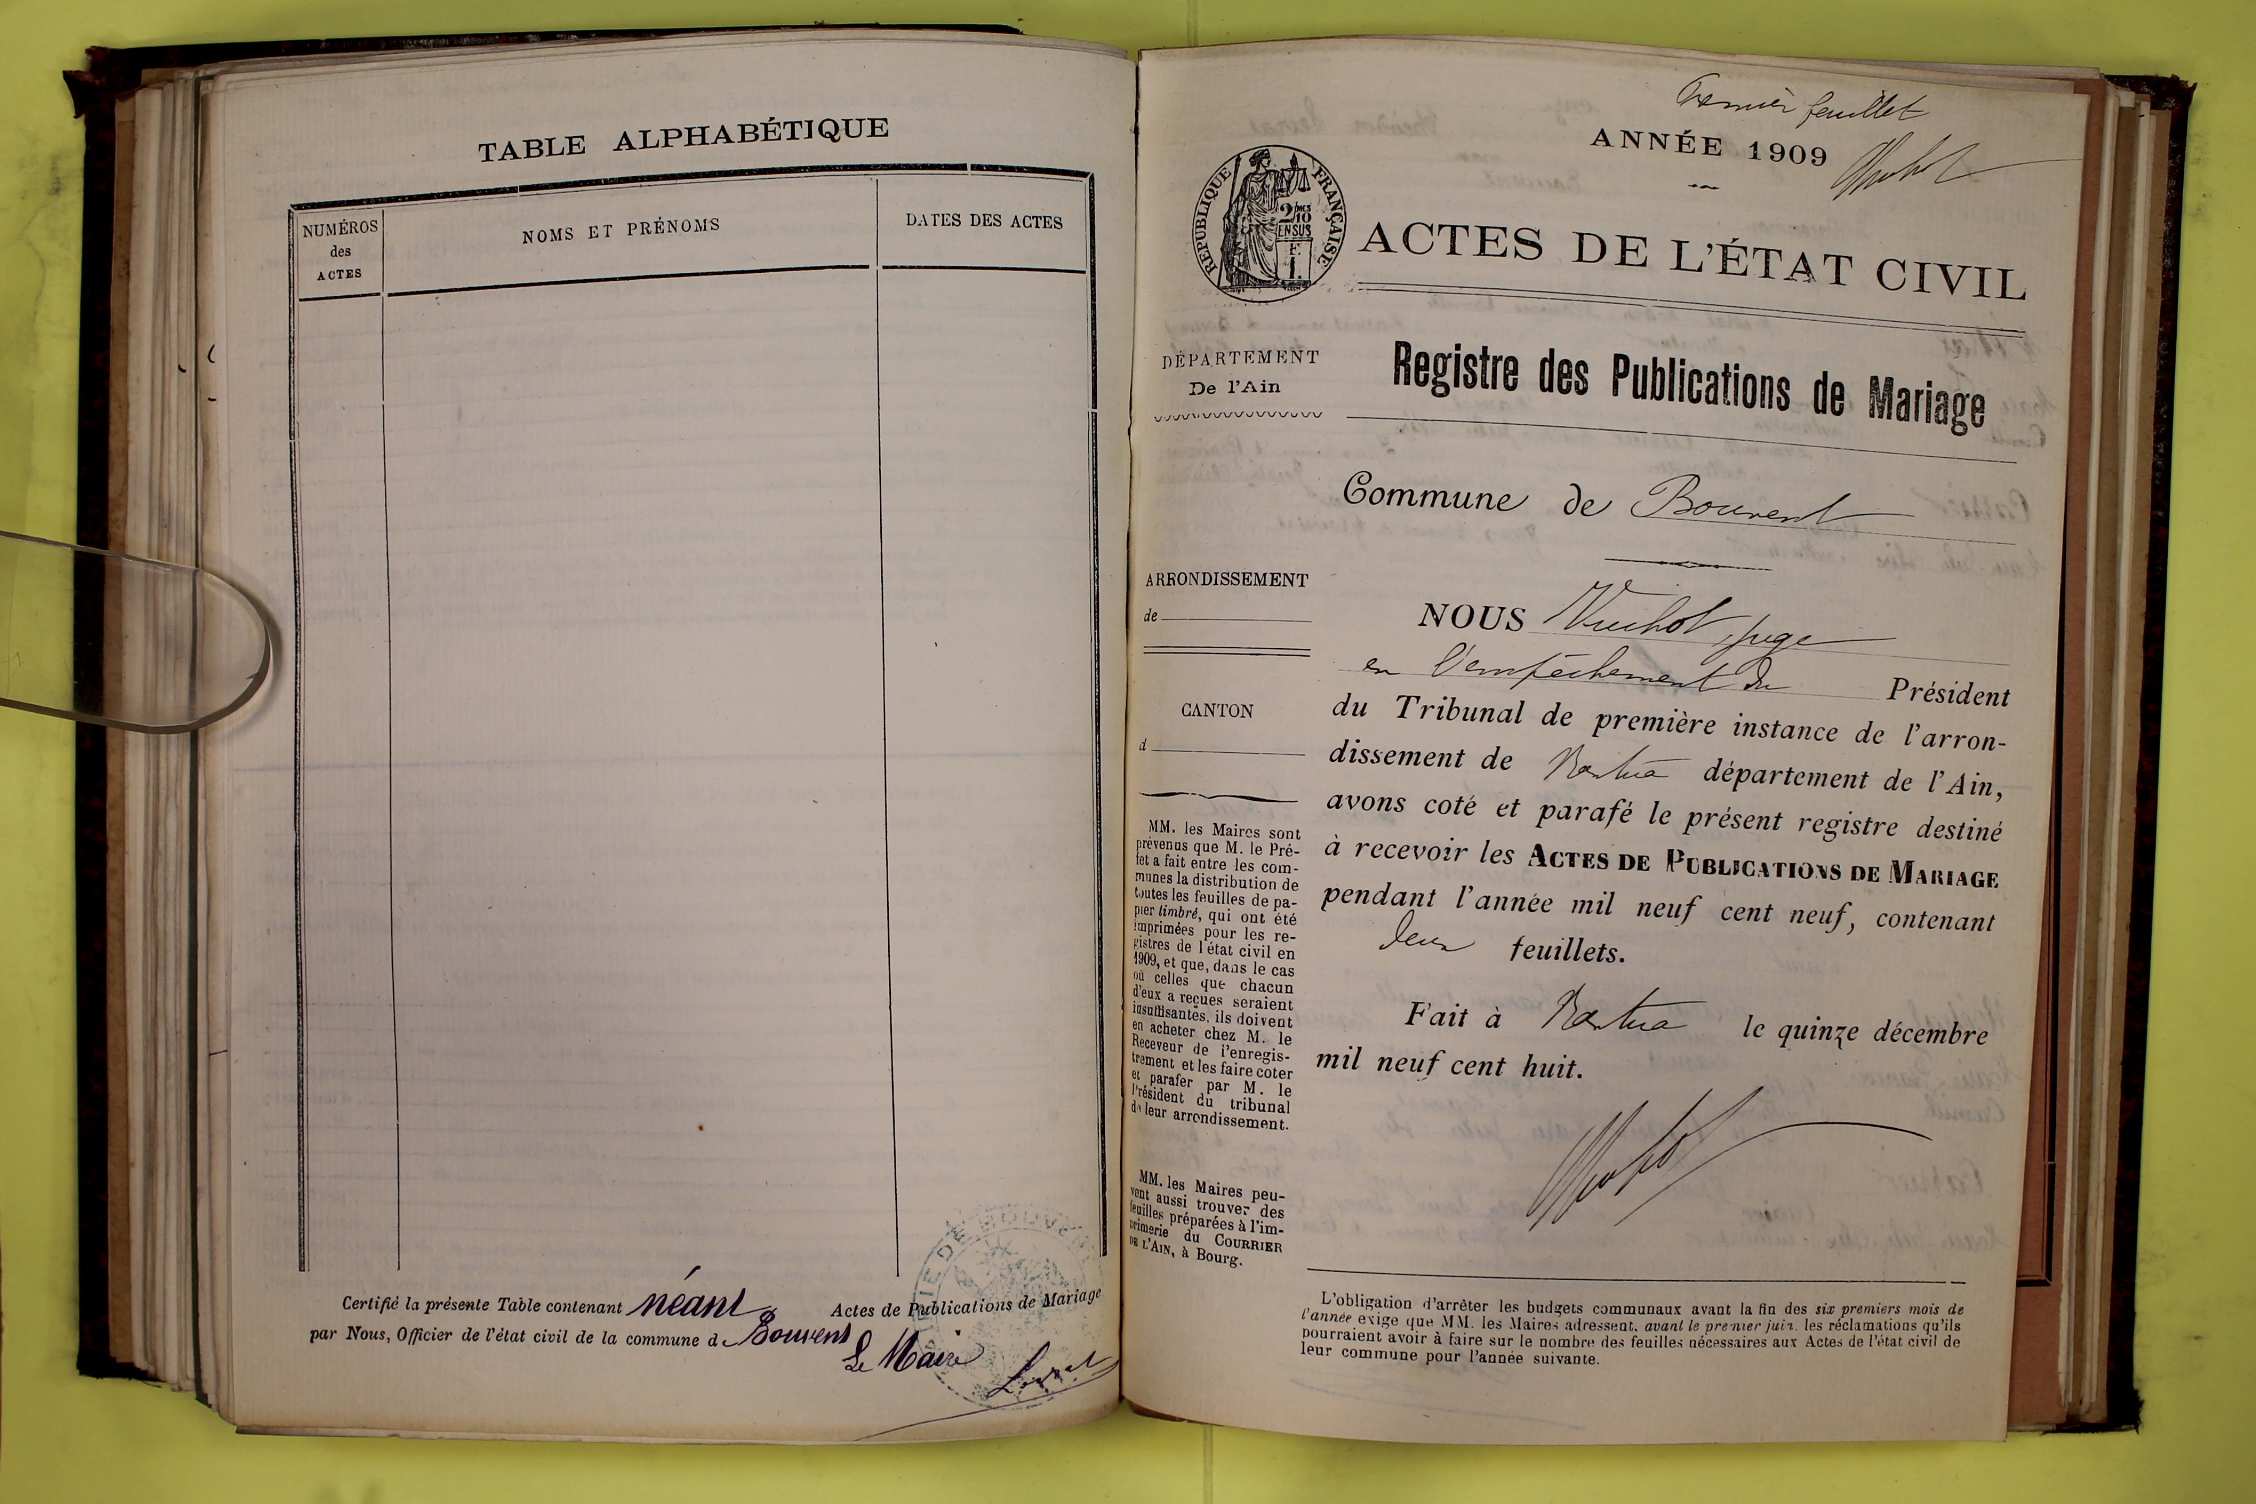 TABLE ALPHABÉTIQUE
NUMÉROS
des
ACTES
NOMS ET PRÉNOMS
DATES DES ACTES
Certifié la présente Table contenant néant Actes de Publications de Mariage
par Nous, Officier de l'état civil de la commune de Bouvent
Le Maire
Premier feuillet
ANNÉE 1909
RÉPUBLIQUE FRANÇAISE
2/10
EN SUS
ACTES DE L'ÉTAT CIVIL
DÉPARTEMENT
De l'Ain
Registre des Publications de Mariage
Commune de Bouvent
ARRONDISSEMENT
de
CANTON
d
MM. les Maires sont
prévenus que M. le Pré-
fet a fait entre les com-
munes la distribution de
toutes les feuilles de pa-
pier timbré, qui ont été
imprimées pour les re-
gistres de l'état civil en
1909, et que, dans le cas
où celles que chacun
d'eux a reçues seraient
insuffisantes, ils doivent
en acheter chez M. le
Receveur de l'enregis-
trement et les faire coter
et parafer par M. le
Président du tribunal
de leur arrondissement.
MM. les Maires peu-
vent aussi trouver des
feuilles préparées à l'im-
primerie du COURRIER
DE L'AIN, à Bourg.
NOUS Vuchot, juge
en l'empêchement du Président
du Tribunal de première instance de l'arron-
dissement de Nantua département de l'Ain,
avons coté et parafé le présent registre destiné
à recevoir les ACTES DE PUBLICATIONS DE MARIAGE
pendant l'année mil neuf cent neuf, contenant
deux feuillets.
Fait à Nantua le quinze décembre
mil neuf cent huit.
L'obligation d'arrêter les budgets communaux avant la fin des six premiers mois de
l'année exige que MM. les Maires adressent, avant le premier juin, les réclamations qu'ils
pourraient avoir à faire sur le nombre des feuilles nécessaires aux Actes de l'état civil de
leur commune pour l'année suivante.